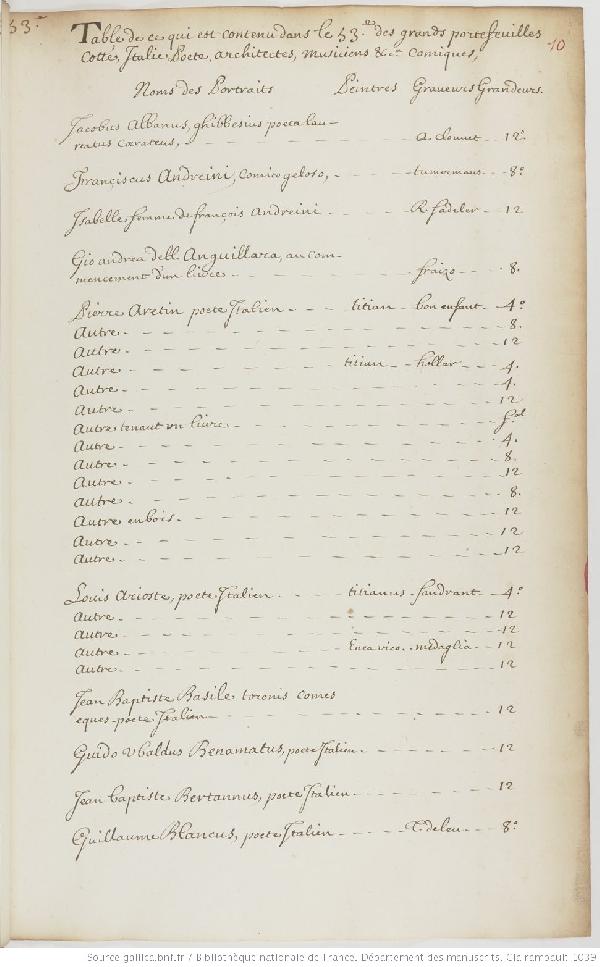 53.e
Table de ce qui est contenu dans le 53.me des grands portefeuilles
Cotté, Italie, Poete, architectes, musiciens &ca Comiques,
10
Noms des Portraits Peintres Graveurs Grandeurs.
Jacobus Albanus, ghibbesius poeta lau-
reatus Cæsareus, - - - - a Clouuet - 12.o
Franciscus Andreini, Comico geloso, - - - 8.o
Isabelle femme de françois Andreini - - - - R. Sadeler - 12
Gio andrea dell. Anguillara, au com-
mencement d'un livre - - - - - fraizo - - 8.
Pierre Aretin poete Italien - - - titian - bon enfant - 4.o
Autre - - - - - - 8.
Autre - - - - - - 12
Autre - - - - titian - - hollar - - 4.
Autre - - - - - - 4.
Autre - - - - - - 12
Autre tenant un livre - - - - - - f.ol
Autre - - - - - - 4.
Autre - - - - - - 8.
Autre - - - - - - 12
Autre - - - - - - 8.
Autre en bois - - - - - - 12
Autre - - - - - - 12
Autre - - - - - - 12
Louis Arioste, poete Italien - - - titianus - Sandrart - 4.o
Autre - - - - - - 12
Autre - - - - - - 12
Autre - - - - Enea vico - medaglia - - 12
Autre - - - - - - 12
Jean Baptiste Basile toronis comes
eques - poete Italien - - - - - - 12
Guido Vbaldus Benamatus, poete Italien - - - - 12
Jean baptiste Bertannus, poete Italien - - - - - 12
Guillaume Blancus, poete Italien - - - - T. de leu - - 8.o
Source gallica.bnf.fr / Bibliothèque nationale de France. Département des manuscrits. Clairambault 1039